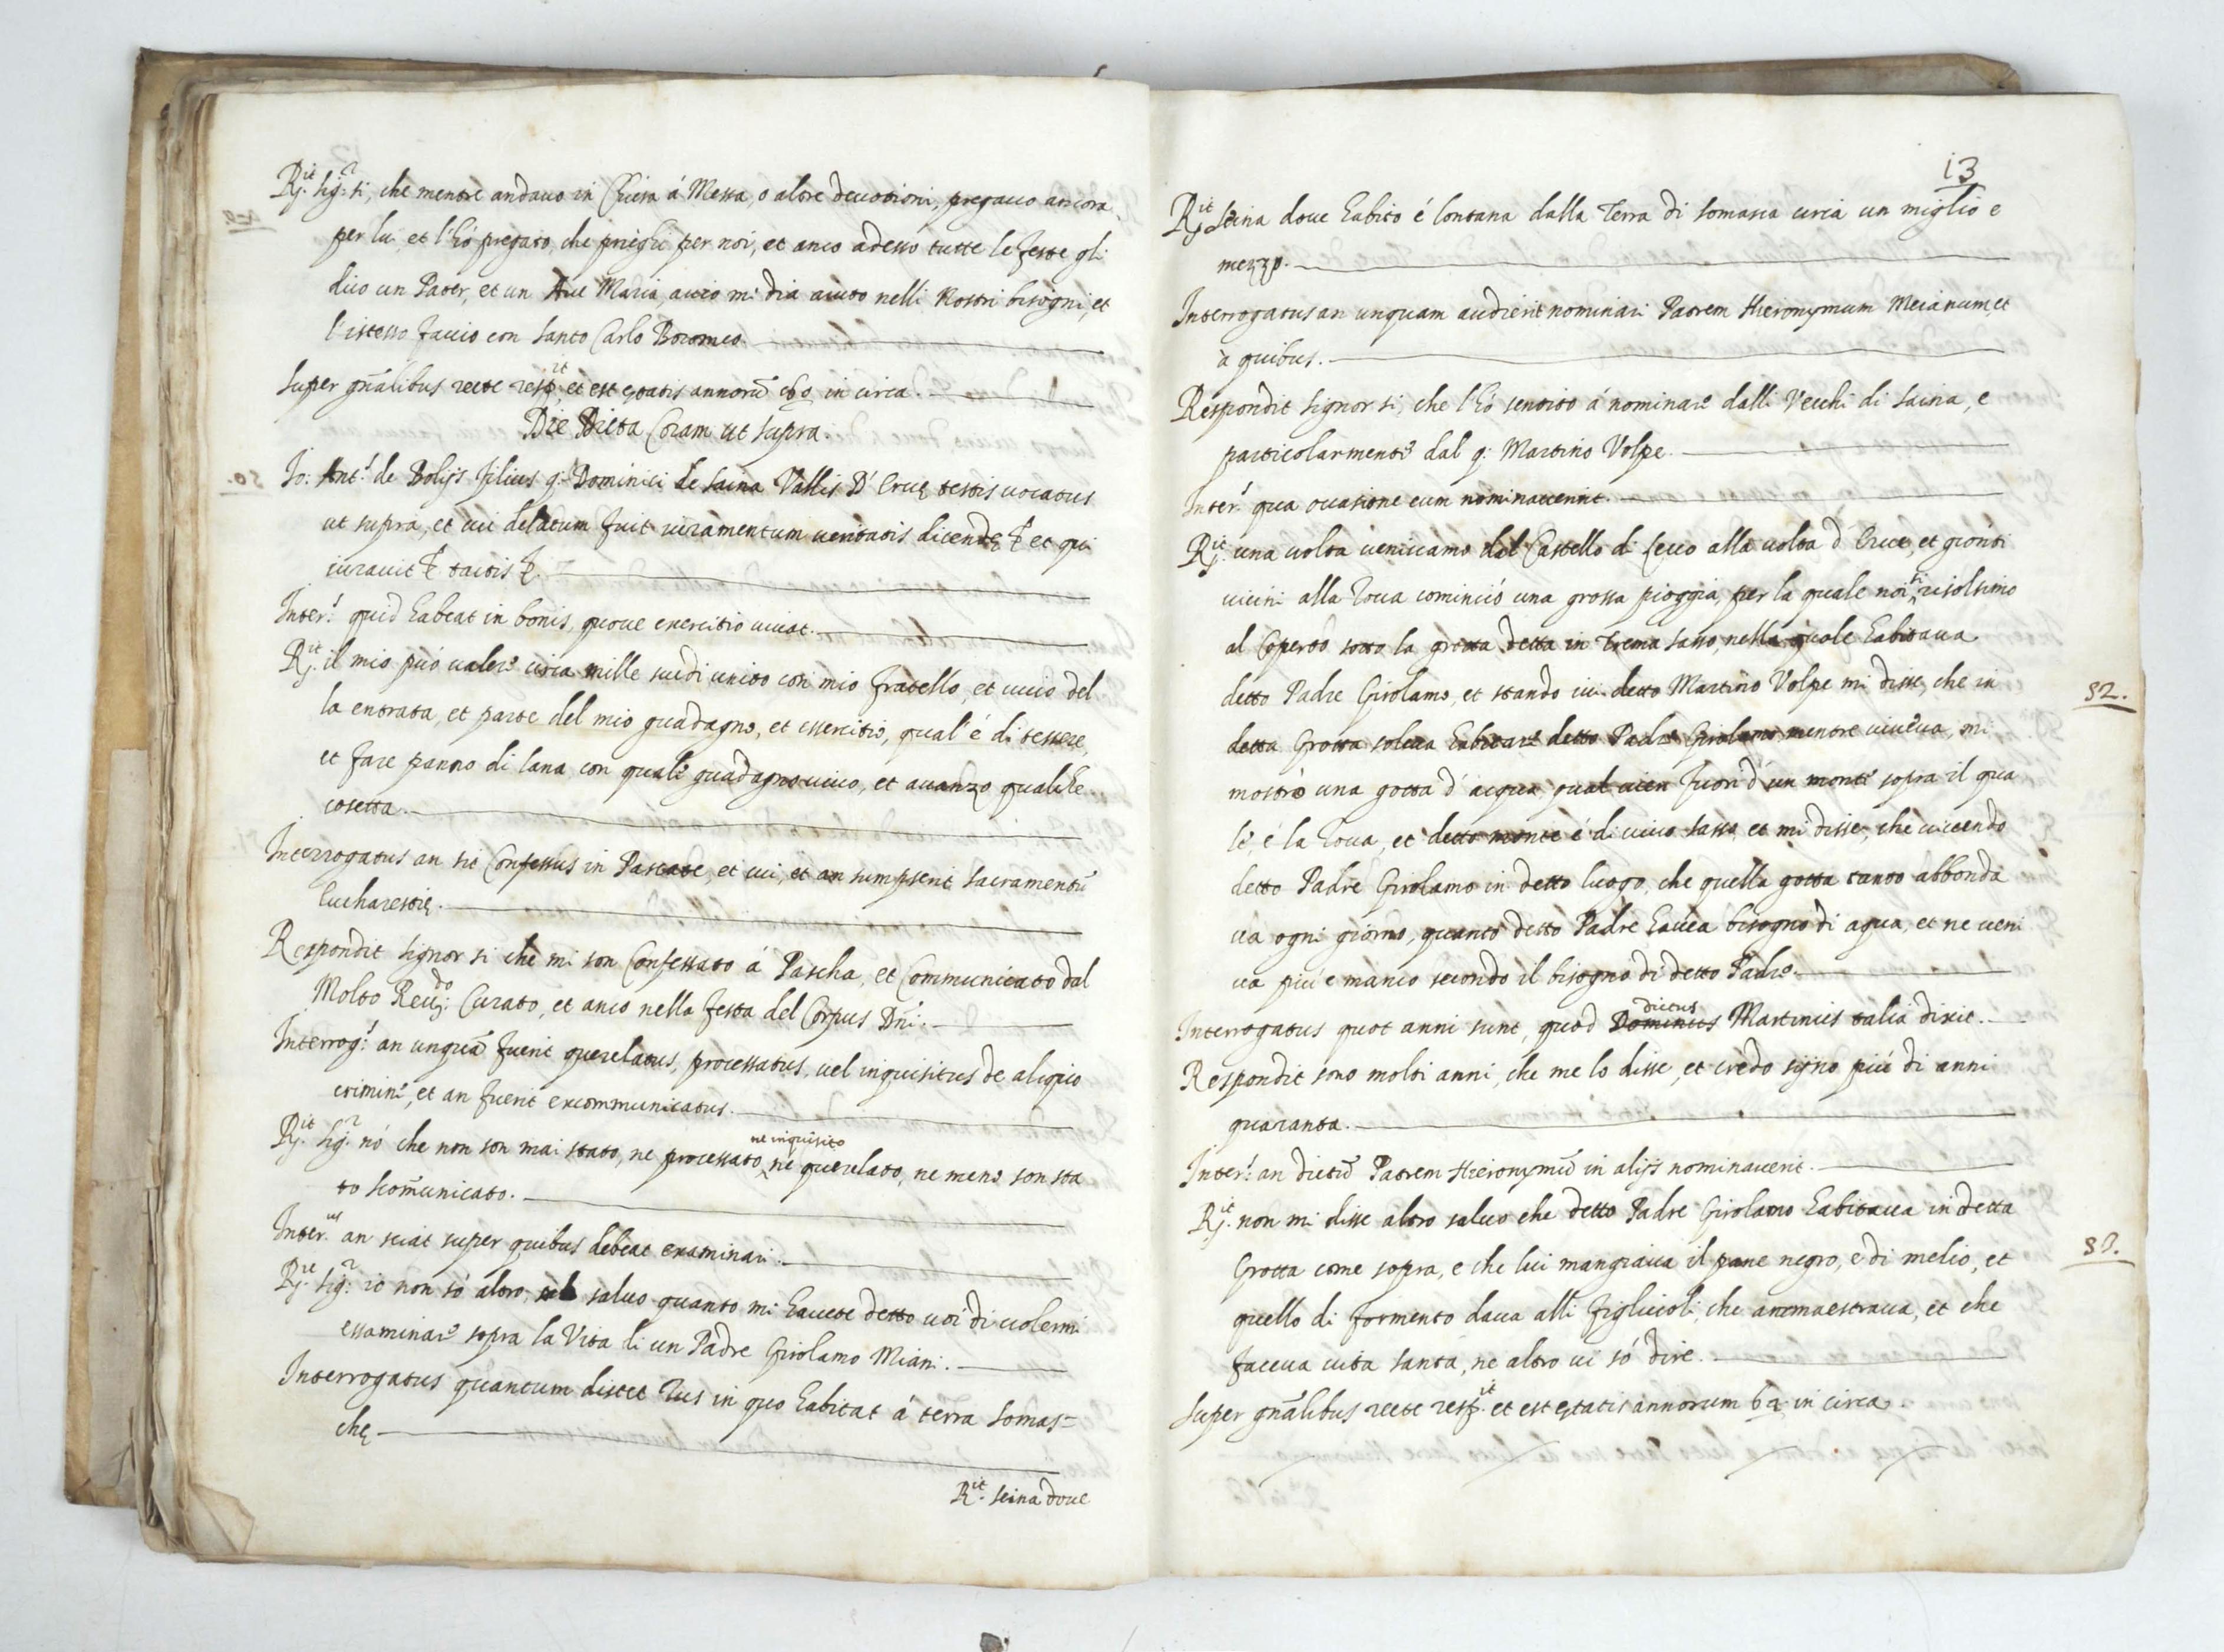 R.it Sig.r si, che mentre andavo in Chiesa á Messa, o altre devotioni, pregavo ancora
per lui, et l'hó pregato, che prieghi per noi, et anco adesso tutte le feste gli
dico un Pater, et un Ave Maria, acció mi dia aiuto nelli Nostri bisogni, et
l'istesso faccio con Santo Carlo Boromeo.
Super gñalibus recte resp.it et est ętatis annorũ 60 in circa.
Die Dicta Coram ut supra.
50.
Io: Ant.s de Bolijs filius q. Dominici de Saina Vallis D'Ervę testis vocatus
ut supra, et cui delatum fuit iuramentum veritatis dicendę &c et qui
iuravit &c tactis &c.
Inter.s quid habeat in bonis, quove exercitio vivat.
R.it il mio puó valere circa mille scudi unito con mio fratello, et vivo del
la entrata, et parte del mio guadagno, et essercitio, qual' é di tessere,
et fare panno di lana, con quale guadagno vivo, et avanzo qualche
cosetta.
Interrogatus an sit Confessus in Pascate, et cui, et an sumpserit Sacramentũ
Eucharestię.
Respondit Signor si che mi son Confessato á Pascha, et Communicato dal
Molto Rev.do Curato, et anco nella festa del Corpus Dñi.
Interrog.s an unquã fuerit querelatus, processatus, vel inquisitus de aliquo
crimine, et an fuerit excommunicatus.
R.it Sig.r nó che non son mai stato, ne processato, ne inquisito ne querelato, ne meno son sta
to scom̃unicato.
Inter.us an sciat super quibus debeat examinari.
R.it Sig.r io non só altro, salvo quanto mi havete detto voi di volermi
essaminare sopra la Vita di un Padre Girolamo Miani.
Interrogatus quantum distet Rus in quo habitat á terra Somas=
chę
R.it Seina dove
13
R.it Seina dove habito é lontana dalla Terra di Somasca circa un miglio e
mezzo.
Interrogatus an unquam audierit nominari Patrem Hieronymum Meianum, et
à quibus.
Respondit Signor si, che l'hó sentito á nominare dalli Vecchi di Saina, e
particolarmente dal q. Martino Volpe.
Inter.s qua occasione eum nominaverint.
R.it una volta venivamo dal Castello di Lecco alla volta d'Erve, et gionti
vicini alla Rocca cominció una grossa pioggia, per la quale noi si risolsimo
al Coperto sotto la grotta detta in Trema sasso, nella quale habitava
detto Padre Girolamo, et stando ivi detto Martino Volpe mi disse, che in
52.
detta Grotta soleva habitare detto Padre Girolamo mentre viveva, mi
mostrò una gotta d'acqua, qual vien fuori d'un monte sopra il qua
le é la Rocca, et detto monte é di vivo sasso, et mi disse, che vivendo
detto Padre Girolamo in detto luogo, che quella gotta tanto abbonda
va ogni giorno, quanto detto Padre havea bisogno di aqua, et ne veni
va piú e manco secondo il bisogno di detto Padre.
Interrogatus quot anni sunt, quod Dominus dictus Martinus talia dixit.
Respondit sono molti anni, che me lo disse, et credo sijno piú di anni
quaranta.
Inter.s an dictũ Patrem Hieronymũ in alijs nominaverit.
R.it non mi disse altro salvo che detto Padre Girolamo habitava in detta
53.
Grotta come sopra, e che lui mangiava il pane negro, e di melio, et
quello di formento dava alli figliuoli, che ammaestrava, et che
faceva vita santa, ne altro vi só dire.
Super gñalibus recte resp.it et est ętatis annorum 62 in circa.